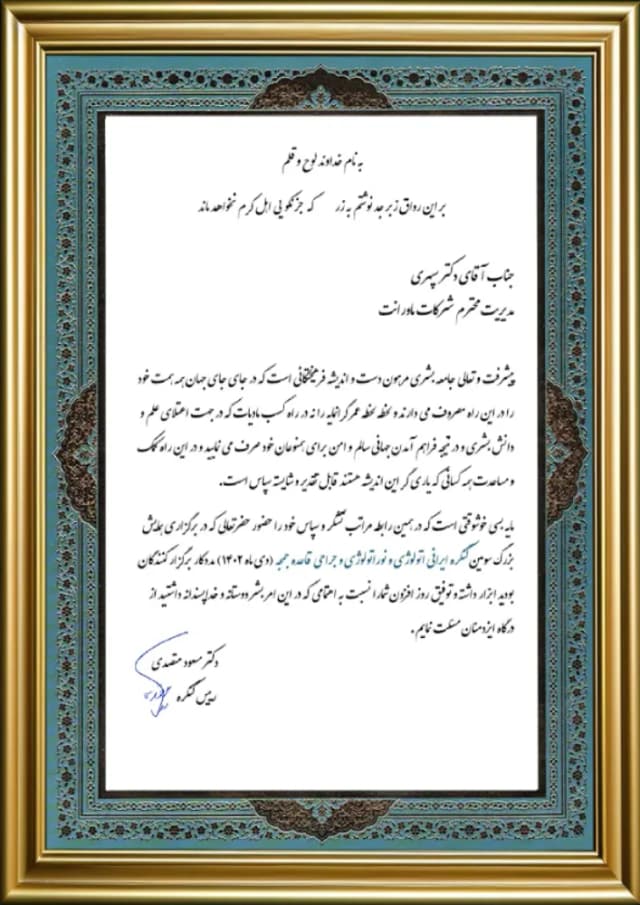 به نام خداوند لوح و قلم
بر این رواق زبرجد نوشتم به زر که جز نکویی اهل کرم نخواهد ماند
جناب آقای دکتر سپهری
مدیریت محترم شرکت ماورانت
پیشرفت و تعالی جامعه بشری مرهون دست و اندیشه فرهیختگانی است که در جای جای جهان همه همت خود
را در این راه مصروف می دارند و لحظه لحظه عمر گرانمایه را نه در راه کسب مادیات که در جهت اعتلای علم و
دانش بشری و در نتیجه فراهم آمدن جهانی سالم و امن برای همنوعان خود صرف می نمایند و در این راه کمک
و مساعدت همه کسانی که یاری گر این اندیشه هستند قابل تقدیر و شایسته سپاس است.
مایه بسی خوشوقتی است که در همین رابطه مراتب تشکر و سپاس خود را حضور حضرتعالی که در برگزاری همایش
بزرگ سومین کنگره ایرانی اتولوژی و نوراتولوژی و جراحی قاعده جمجمه (دی ماه ۱۴۰۲) مددکار برگزار کنندگان
بودید ابراز داشته و توفیق روز افزون شما را نسبت به اهتمامی که در این امر بشردوستانه و خداپسندانه داشتید از
درگاه ایزدمنان مسئلت نمایم.
دکتر مسعود متصدی
رییس کنگره